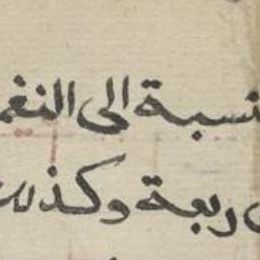 نسبة الى النغم
ربعة وكذلك